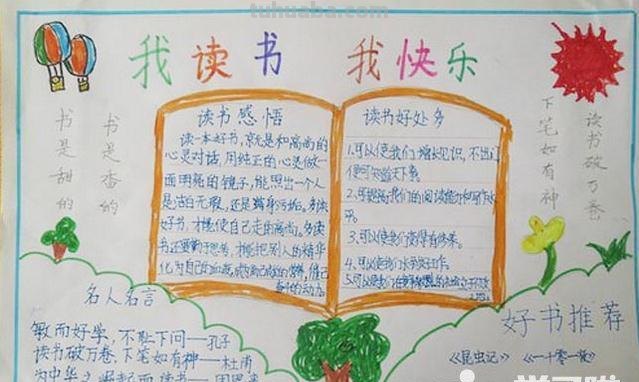 tuhuaba.com
我读书 我快乐
书是甜的
书是香的
下笔如有神
读书破万卷
读书感悟
读一本好书，就是和高尚的
心灵对话，用纯正的心灵做一
面明亮的镜子，能照出一个人
是洁白无瑕，还是满身污垢。多读
好书，才能使自己走向高尚。多读
书还要勤于思考，才能把别人的精华
化为自己的血液，成为自己的营养，
奋斗的动力。
读书好处多
1.可以使我们增长见识，不出门
便可知道天下事。
2.可提高我们的阅读能力和写作水
平。
3.可以使我们变得有修养。
4.可以使我们
5.可以使我们在
名人名言
敏而好学，不耻下问——孔子
读书破万卷，下笔如有神——杜甫
为中华之崛起而读书——周恩来
好书推荐
《昆虫记》《一千零一夜》